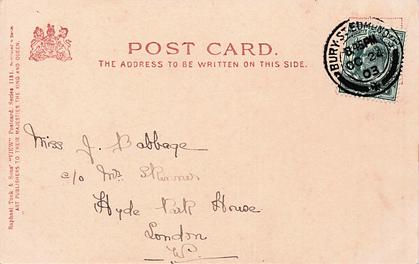 POST CARD.
THE ADDRESS TO BE WRITTEN ON THIS SIDE.
Raphael Tuck & Sons' "VIEW" Postcard, Series 1181.
ART PUBLISHERS TO THEIR MAJESTIES THE KING AND QUEEN.
BURY ST. EDMUNDS
OC 24
03
Miss J. Babbage
c/o Mrs Skinner
Hyde Park House
London
W.